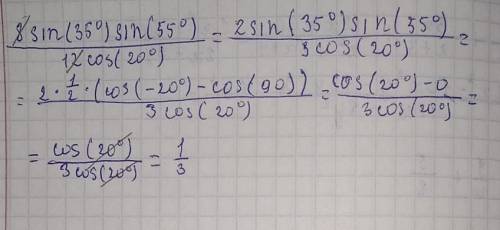 8sin(35°)sin(55°)/12cos(20°) = 2sin(35°)sin(55°)/3cos(20°) =
= 2·1/2·(cos(-20°)-cos(90))/3cos(20°) = cos(20°)-0/3cos(20°) =
= cos(20°)/3cos(20°) = 1/3